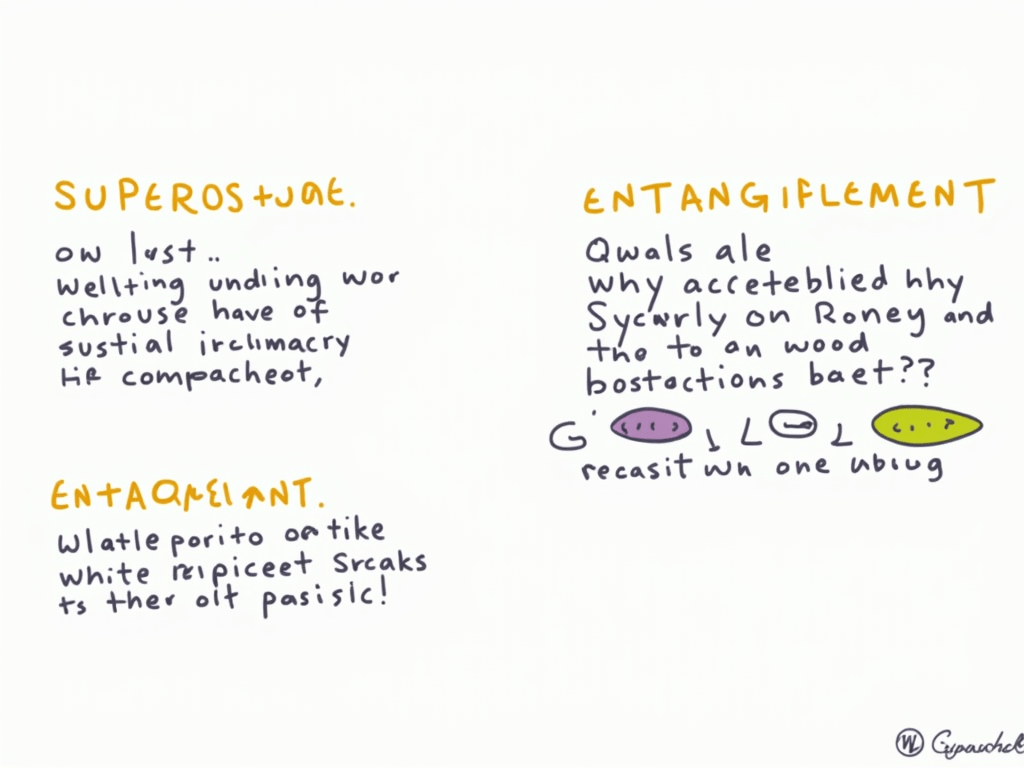 SUPEROS+JUE.
ow lust..
Wellting undling wor
chrouse have of
sustial irclimacry
compacheot,
ENTANGIFLEMENT
Qwals ale
why accreteblied hhy
Sycwrly on Roney and
tho to an wood
bostoctions baet??
G L L
recasit wn one ubiug
Wlatle porito on tike
white rripiceet Srcaks
ts ther olt pasisic!
W